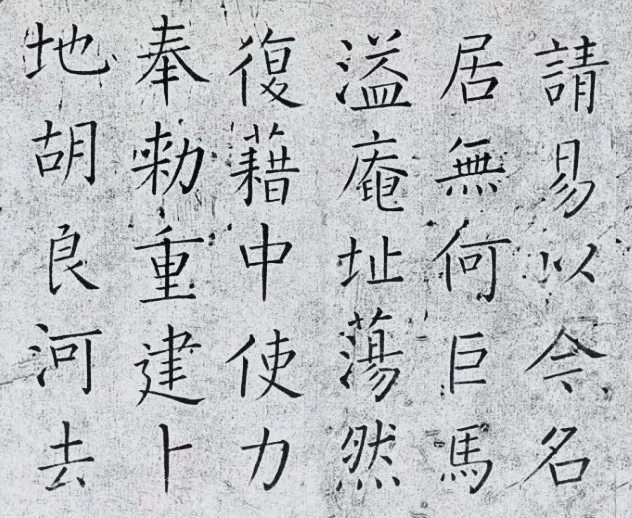 請易以今名
居無何巨馬
溢庵址蕩然
復藉中使力
奉勅重建卜
地胡良河去